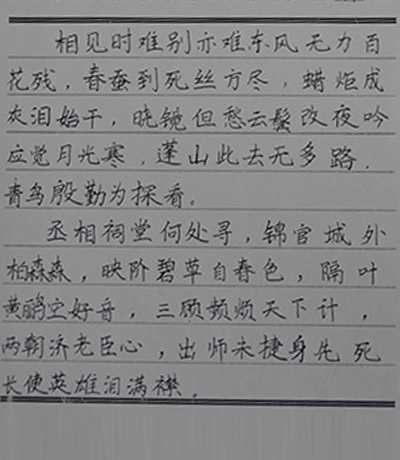 相见时难别亦难东风无力百
花残，春蚕到死丝方尽，蜡炬成
灰泪始干，晓镜但愁云鬓改夜吟
应觉月光寒．蓬山此去无多路．
青鸟殷勤为探看。
丞相祠堂何处寻，锦官城外
柏森森，映阶碧草自春色，隔叶
黄鹂空好音，三顾频烦天下计，
两朝济老臣心，出师未捷身先死
长使英雄泪满襟．